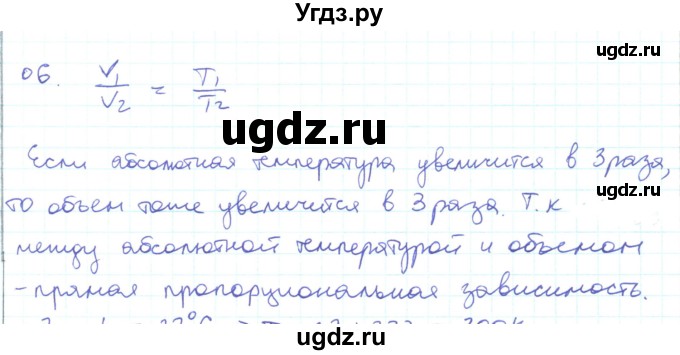 Угдз.ру
ugdz.ru
06. V₁/V₂ = T₁/T₂
ugdz.ru
ugdz.ru
Если абсолютная температура увеличится в 3 раза,
то объем тоже увеличится в 3 раза. Т.к
между абсолютной температурой и объемом
- прямая пропорциональная зависимость.
ugdz.ru